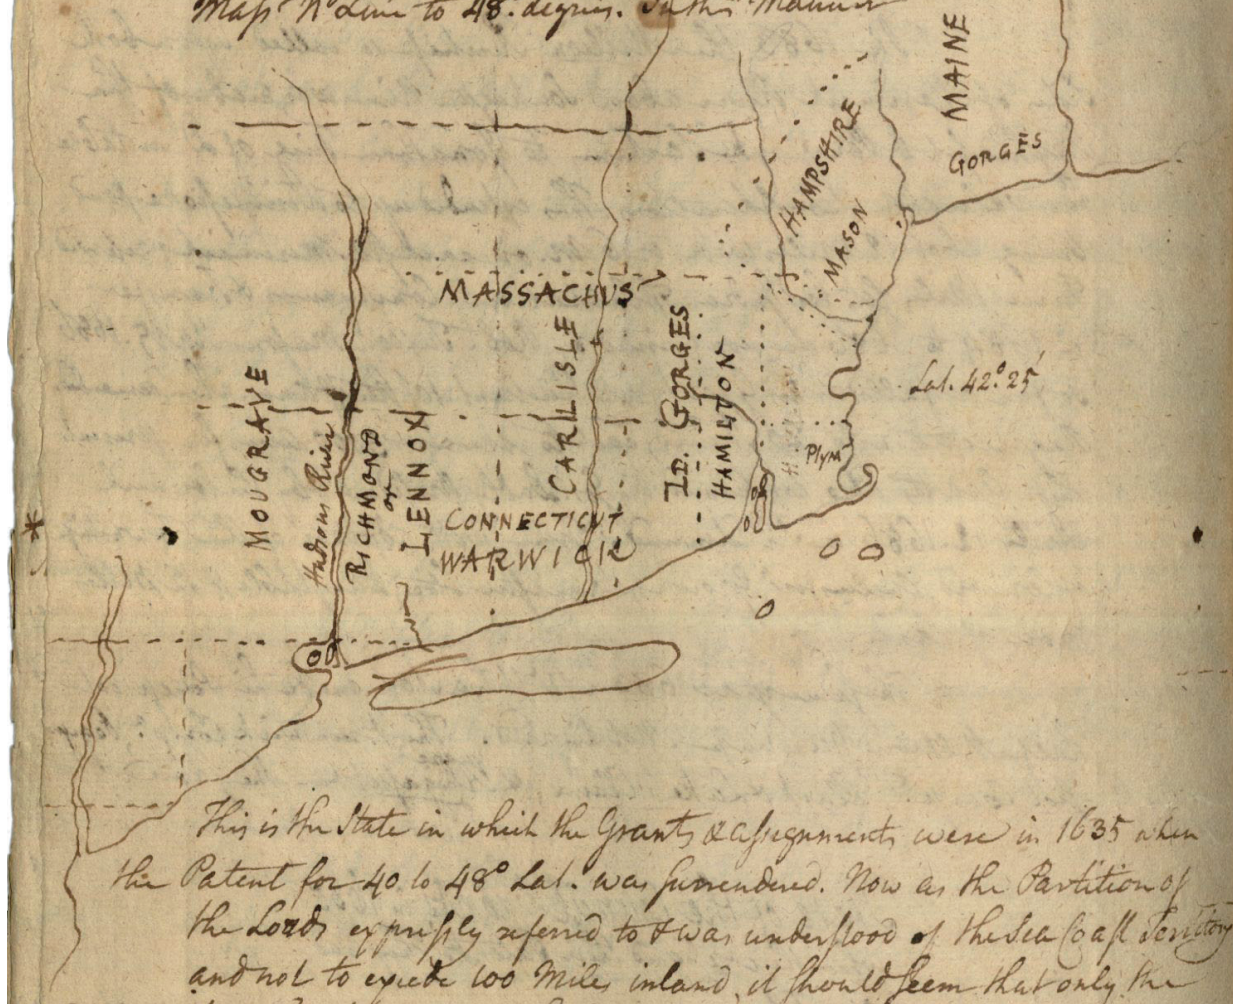 Mass N Line to 48. degrees. In this Manner
MAINE
GORGES
HAMPSHIRE
MASON
MASSACHUS
Lat. 42.° 25'
MOUGRAVE
Hudsons River
RICHMOND
or
LENNOX
CARLISLE
Ld. GORGES
HAMILTON
H.
Plym
CONNECTICUT
WARWICK
This is the State in which the Grants & assignments were in 1635 when
the Patent for 40 to 48° Lat. was surrendered. Now as the Partition of
the Lords expressly referred to & was understood of the Sea Coast Territory
and not to excede 100 Miles inland, it should seem that only the